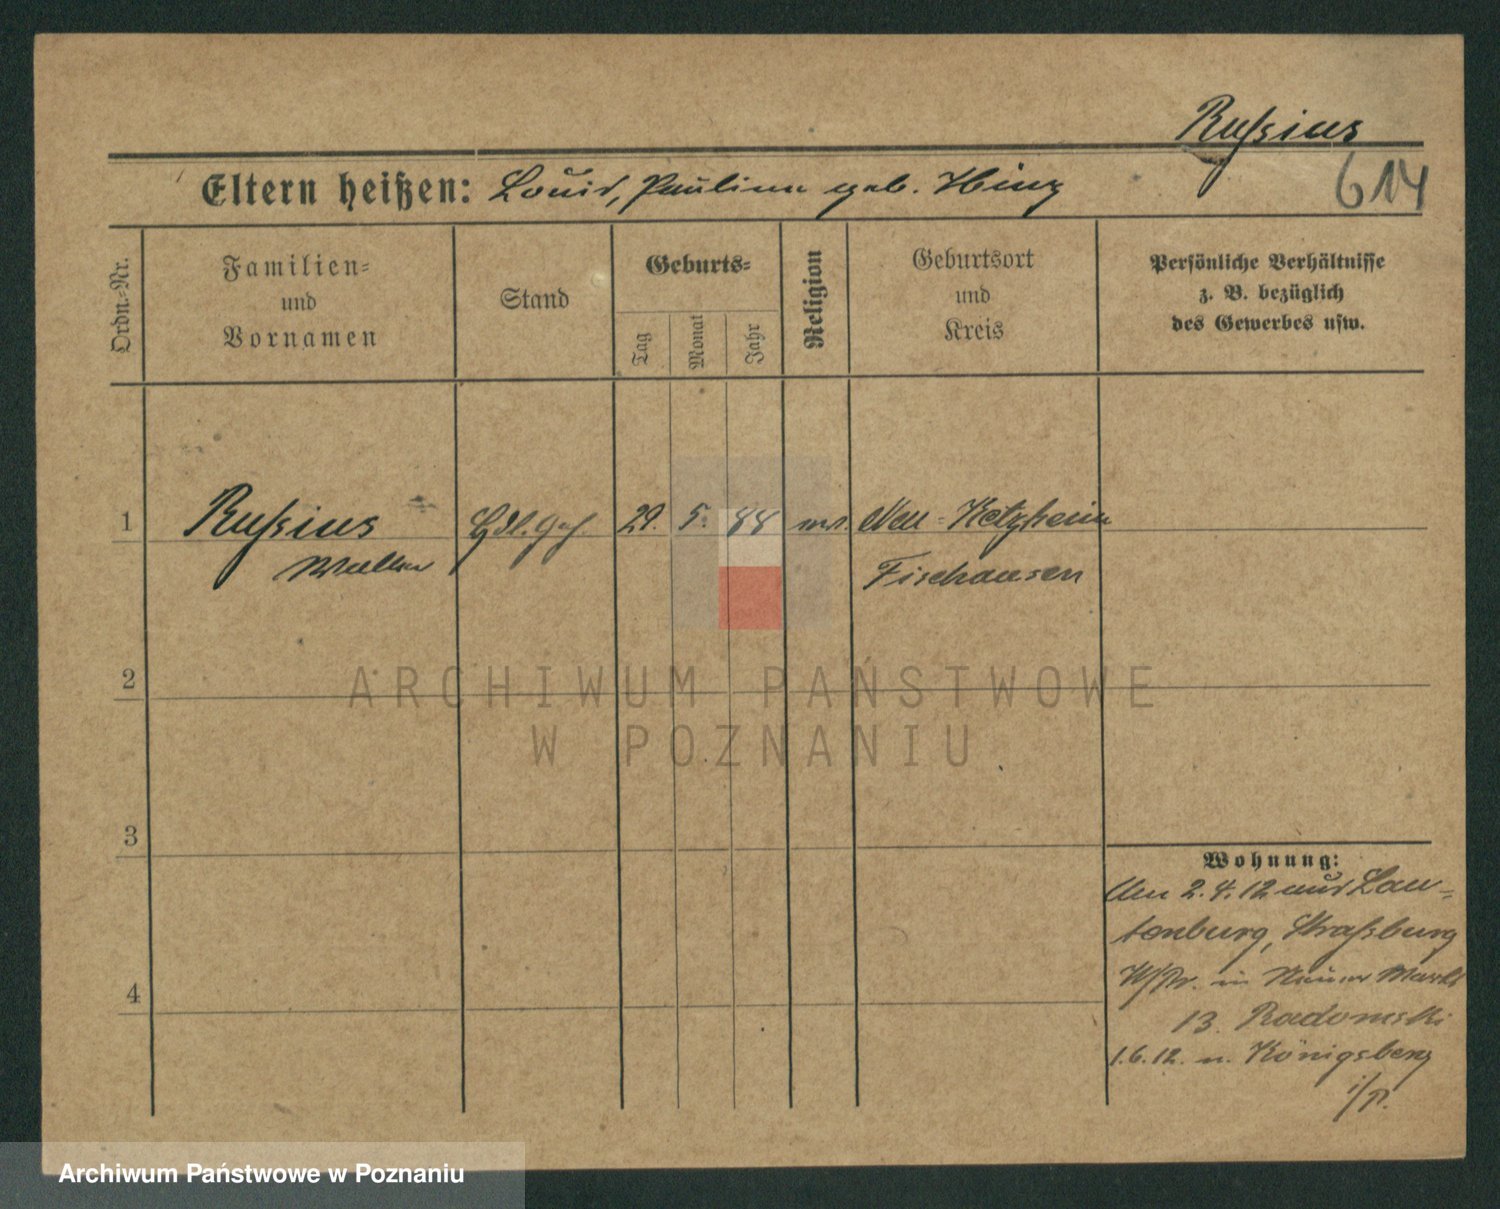 Rußius
614
Eltern heißen: Louis, Pauline geb. Hinz
Ordn.-Nr.
Familien-
und
Vornamen
Stand
Geburts-
Tag
Monat
Jahr
Religion
Geburtsort
und
Kreis
Persönliche Verhältnisse
z. B. bezüglich
des Gewerbes usw.
1 Rußius Hdl. Geh. 29. 5. 88 Neu-
Fischausen
2
ARCHIWUM PAŃSTWOWE
W POZNANIU
3
4
Wohnung:
Am 2.4.12 aus Lau-
tenburg, Straßburg
W/Pr. in Neuer Markt
13. Radomski
1.6.12. n. Königsberg
i/P.
Archiwum Państwowe w Poznaniu